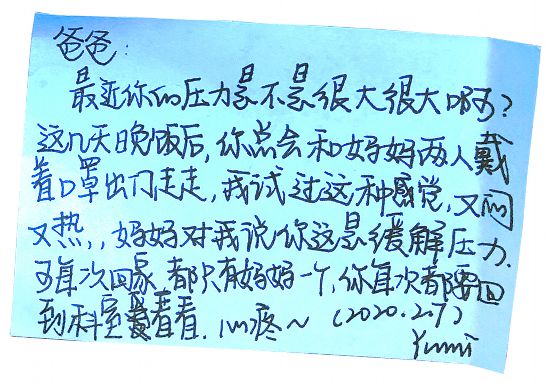 爸爸:
最近你的压力是不是很大很大啊?
这几天晚饭后,你总会和妈妈两人戴
着口罩出门走走,我试过这种感觉,又闷
又热,,妈妈对我说你这是缓解压力.
可每次回家都只有妈妈一个,你每次都要回
到科室看看.心疼~(2020.2.7)
Yumi